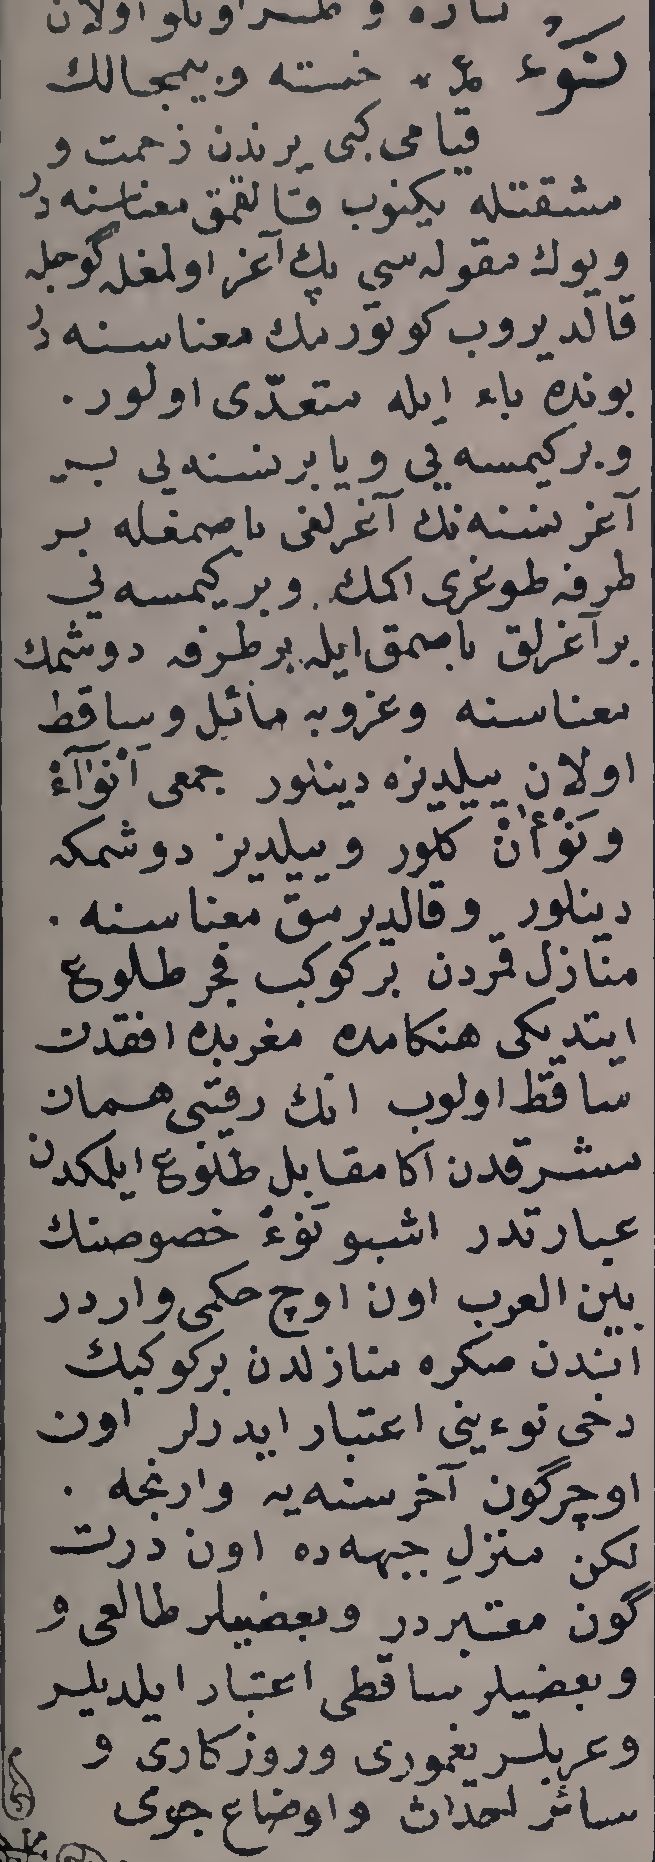 تازه و طراوتلو اولان
نَوْء ع * خسته و بیمجالك
قیامی کبی یرندن زحمت و
مشقتله یکنوب قالقمق معناسنه در
و یوك مقوله سی پك آغر اولمغله گوجله
قالدیروب کوتورمك معناسنه در
بونده باء ایله متعدّی اولور .
و بر کیمسه یی و یا بر نسنه یی بر
آغر نسنه نك آغرلغی باصمغله بر
طرفه طوغری اکمك . و بر کیمسه یی
بر آغرلق باصمق ایله بر طرفه دوشمك
معناسنه و غروبه مائل و ساقط
اولان ییلدیزه دینلور جمعی اَنْوَآءْ
و نَوْأٰنْ کلور و ییلدیز دوشمکه
دینلور و قالدیرمق معناسنه .
منازل قمردن بر کوکب فجر طلوع
ایتدیکی هنکامده مغربده افقدن
ساقط اولوب انك رقیبی همان
مشرقدن اکا مقابل طلوع ایلمکدن
عبارتدر اشبو نَوْءْ خصوصنك
بین العرب اون اوچ حکمی واردر
اندن صکره منازلدن بر کوکبك
دخی نوءینی اعتبار ایدرلر اون
اوچر گون آخر سنه یه وارنجه .
لکن منزلِ جبهه ده اون درت
گون معتبردر و بعضیلر طالعی و
و بعضیلر ساقطی اعتبار ایلدیلر
و عربلر یغموری و روزکاری و
سائر احداث و اوضاع جوی